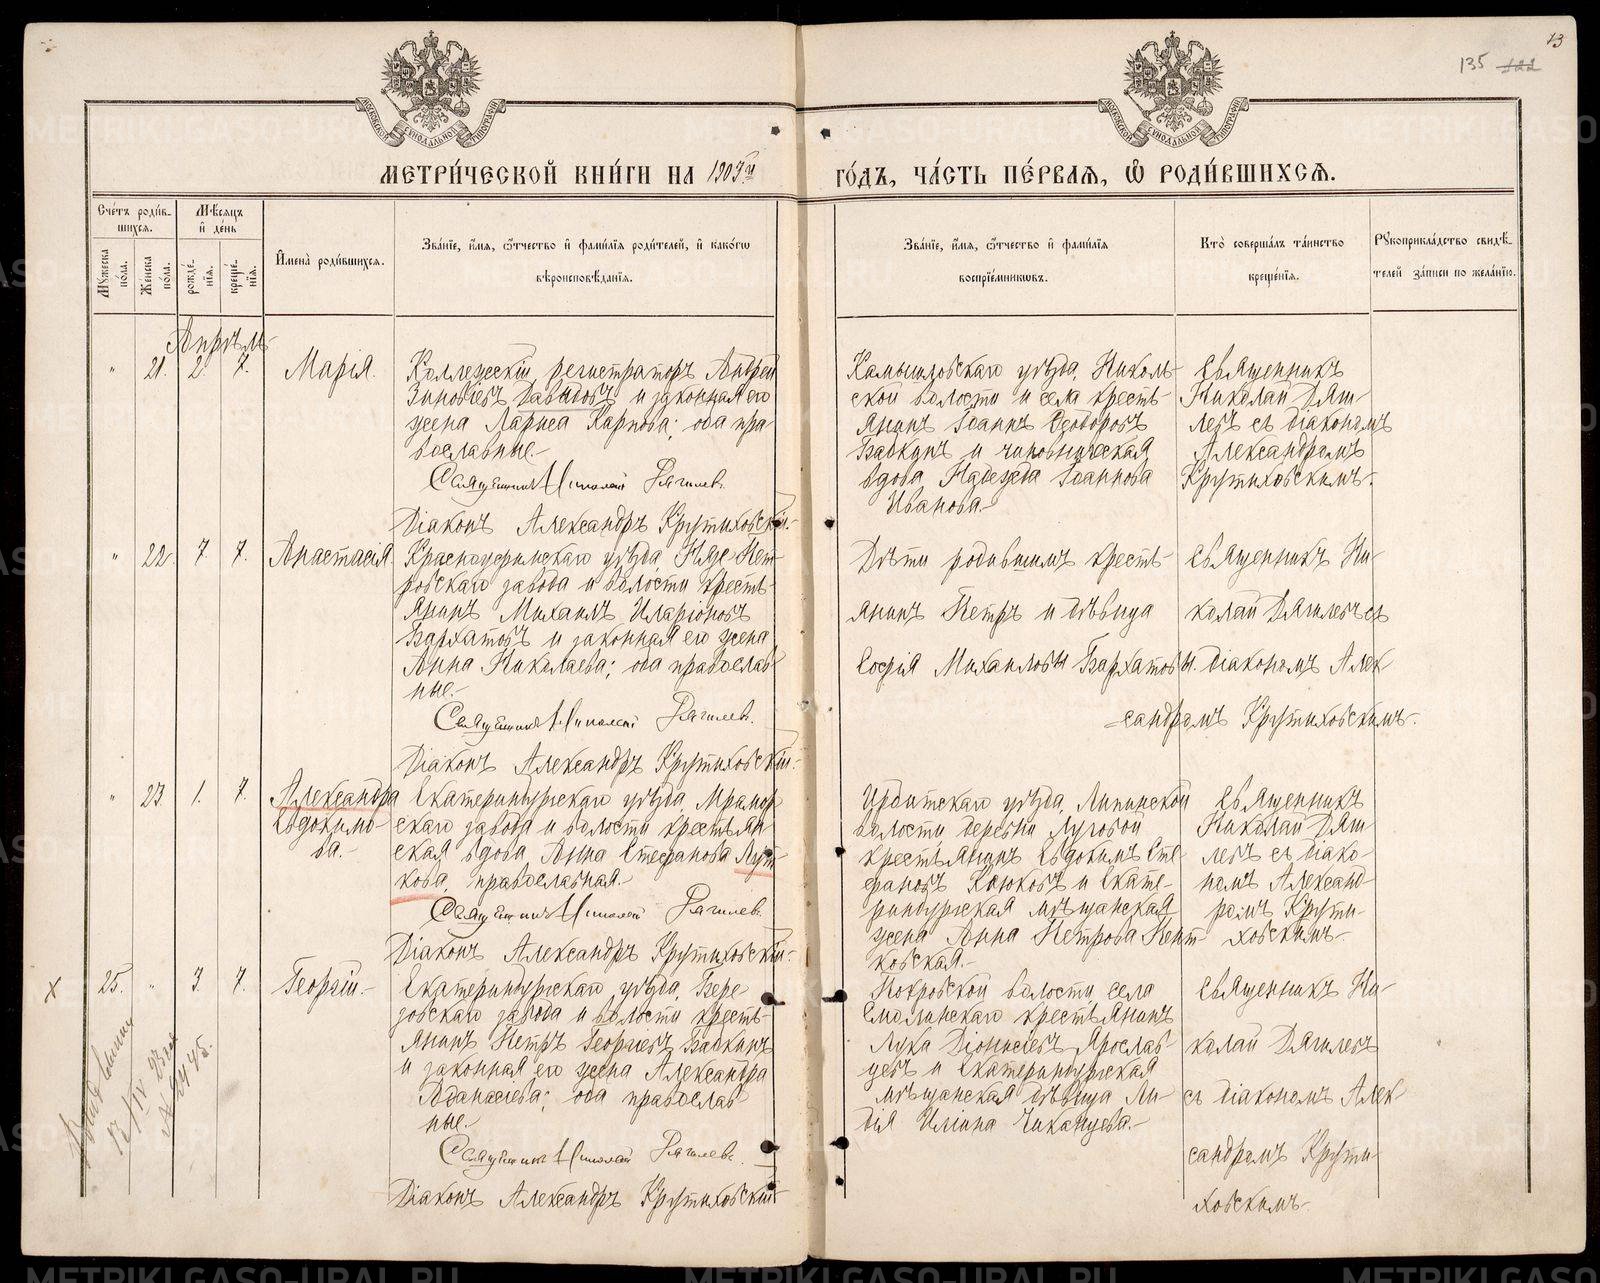 13
135 122
МОСКОВСКОЙ СУНОДАЛЬНОЙ ТИПОГРАФІИ
МОСКОВСКОЙ СУНОДАЛЬНОЙ ТИПОГРАФІИ
МЕТРИ́ЧЕСКОЙ КНИ́ГИ НА 1909й ГО́ДЪ, ЧА́СТЬ ПЕ́РВАѦ, Ѿ РОДИ́ВШИХСѦ.
Счетъ роди́в-
шихся.
Мѣсяцъ
и день
Мужеска
пола.
Женска
пола.
рожде-
нія.
креще-
нія.
Имена родившихся.
Званіе, имя, отчество и фамилія родителей, и какого
вѣроисповѣданія.
Званіе, имя, отчество и фамилія
воспріемниковъ.
Кто совершалъ таинство
крещенія.
Рукоприкладство свидѣ-
телей записи по желанію.
Апрѣль
" 21. 2. 7. Марія.
Коллежскій регистраторъ Андрей
Зиновьевъ Давыдовъ и законная его
жена Лариса Карпова; оба пра-
вославные.-
Священникъ Николай Дягилевъ.
Діаконъ Александръ Крутиховскій.-
Камышловскаго уѣзда, Николь-
ской волости и села кресть-
янинъ Іоаннъ Ѳеодоровъ
Бабкинъ и чиновническая
вдова Надежда Іоаннова
Иванова.-
Священникъ
Николай Дяги-
левъ съ діакономъ
Александромъ
Крутиховскимъ.-
" 22. 7. 7. Анастасія.
Красноуфимскаго уѣзда, Нязе-Пет-
ровскаго завода и волости кресть-
янинъ Михаилъ Иларіоновъ
Бархатовъ и законная его жена
Анна Николаева; оба православ-
ные.-
Священникъ Николай Дягилевъ.
Діаконъ Александръ Крутиховскій.-
Дѣти родившихъ кресть-
янинъ Петръ и дѣвица
Софія Михаиловы Бархатовы.
Священникъ Ни-
колай Дягилевъ съ
діакономъ Алек-
сандромъ Крутиховскимъ.-
" 23 1. 7. Александра
Евдокимо-
ва.-
Екатеринбургскаго уѣзда, Мрамор-
скаго завода и волости крестьян-
ская вдова Анна Стефанова Лут-
кова, православная.-
Священникъ Николай Дягилевъ.
Діаконъ Александръ Крутиховскій.-
Ирбитскаго уѣзда, Липинской
волости деревни Луговой
крестьянинъ Евдокимъ Сте-
фановъ Конюховъ и Екате-
ринбургская мѣщанская
жена Анна Петрова Пент-
ковская.-
Священникъ
Николай Дяги-
левъ съ діако-
номъ Александ-
ромъ Крути-
ховскимъ.-
х 25. " 3. 7. Георгій.-
Екатеринбургскаго уѣзда, Бере-
зовскаго завода и волости кресть-
янинъ Петръ Георгіевъ Бабкинъ
и законная его жена Александра
Аѳанасіева; оба православ-
ные.-
Священникъ Николай Дягилевъ.
Діаконъ Александръ Крутиховскій
Покровской волости, села
Смолинскаго крестьянинъ
Лука Діонисіевъ Ярослав-
цевъ и Екатеринбургская
мѣщанская дѣвица Ли-
дія Иліина Чиканцева.-
Священникъ Ни-
колай Дягилевъ
съ діакономъ Алек-
сандромъ Крути-
ховскимъ.-
METRIKI.GASO-URAL.RU